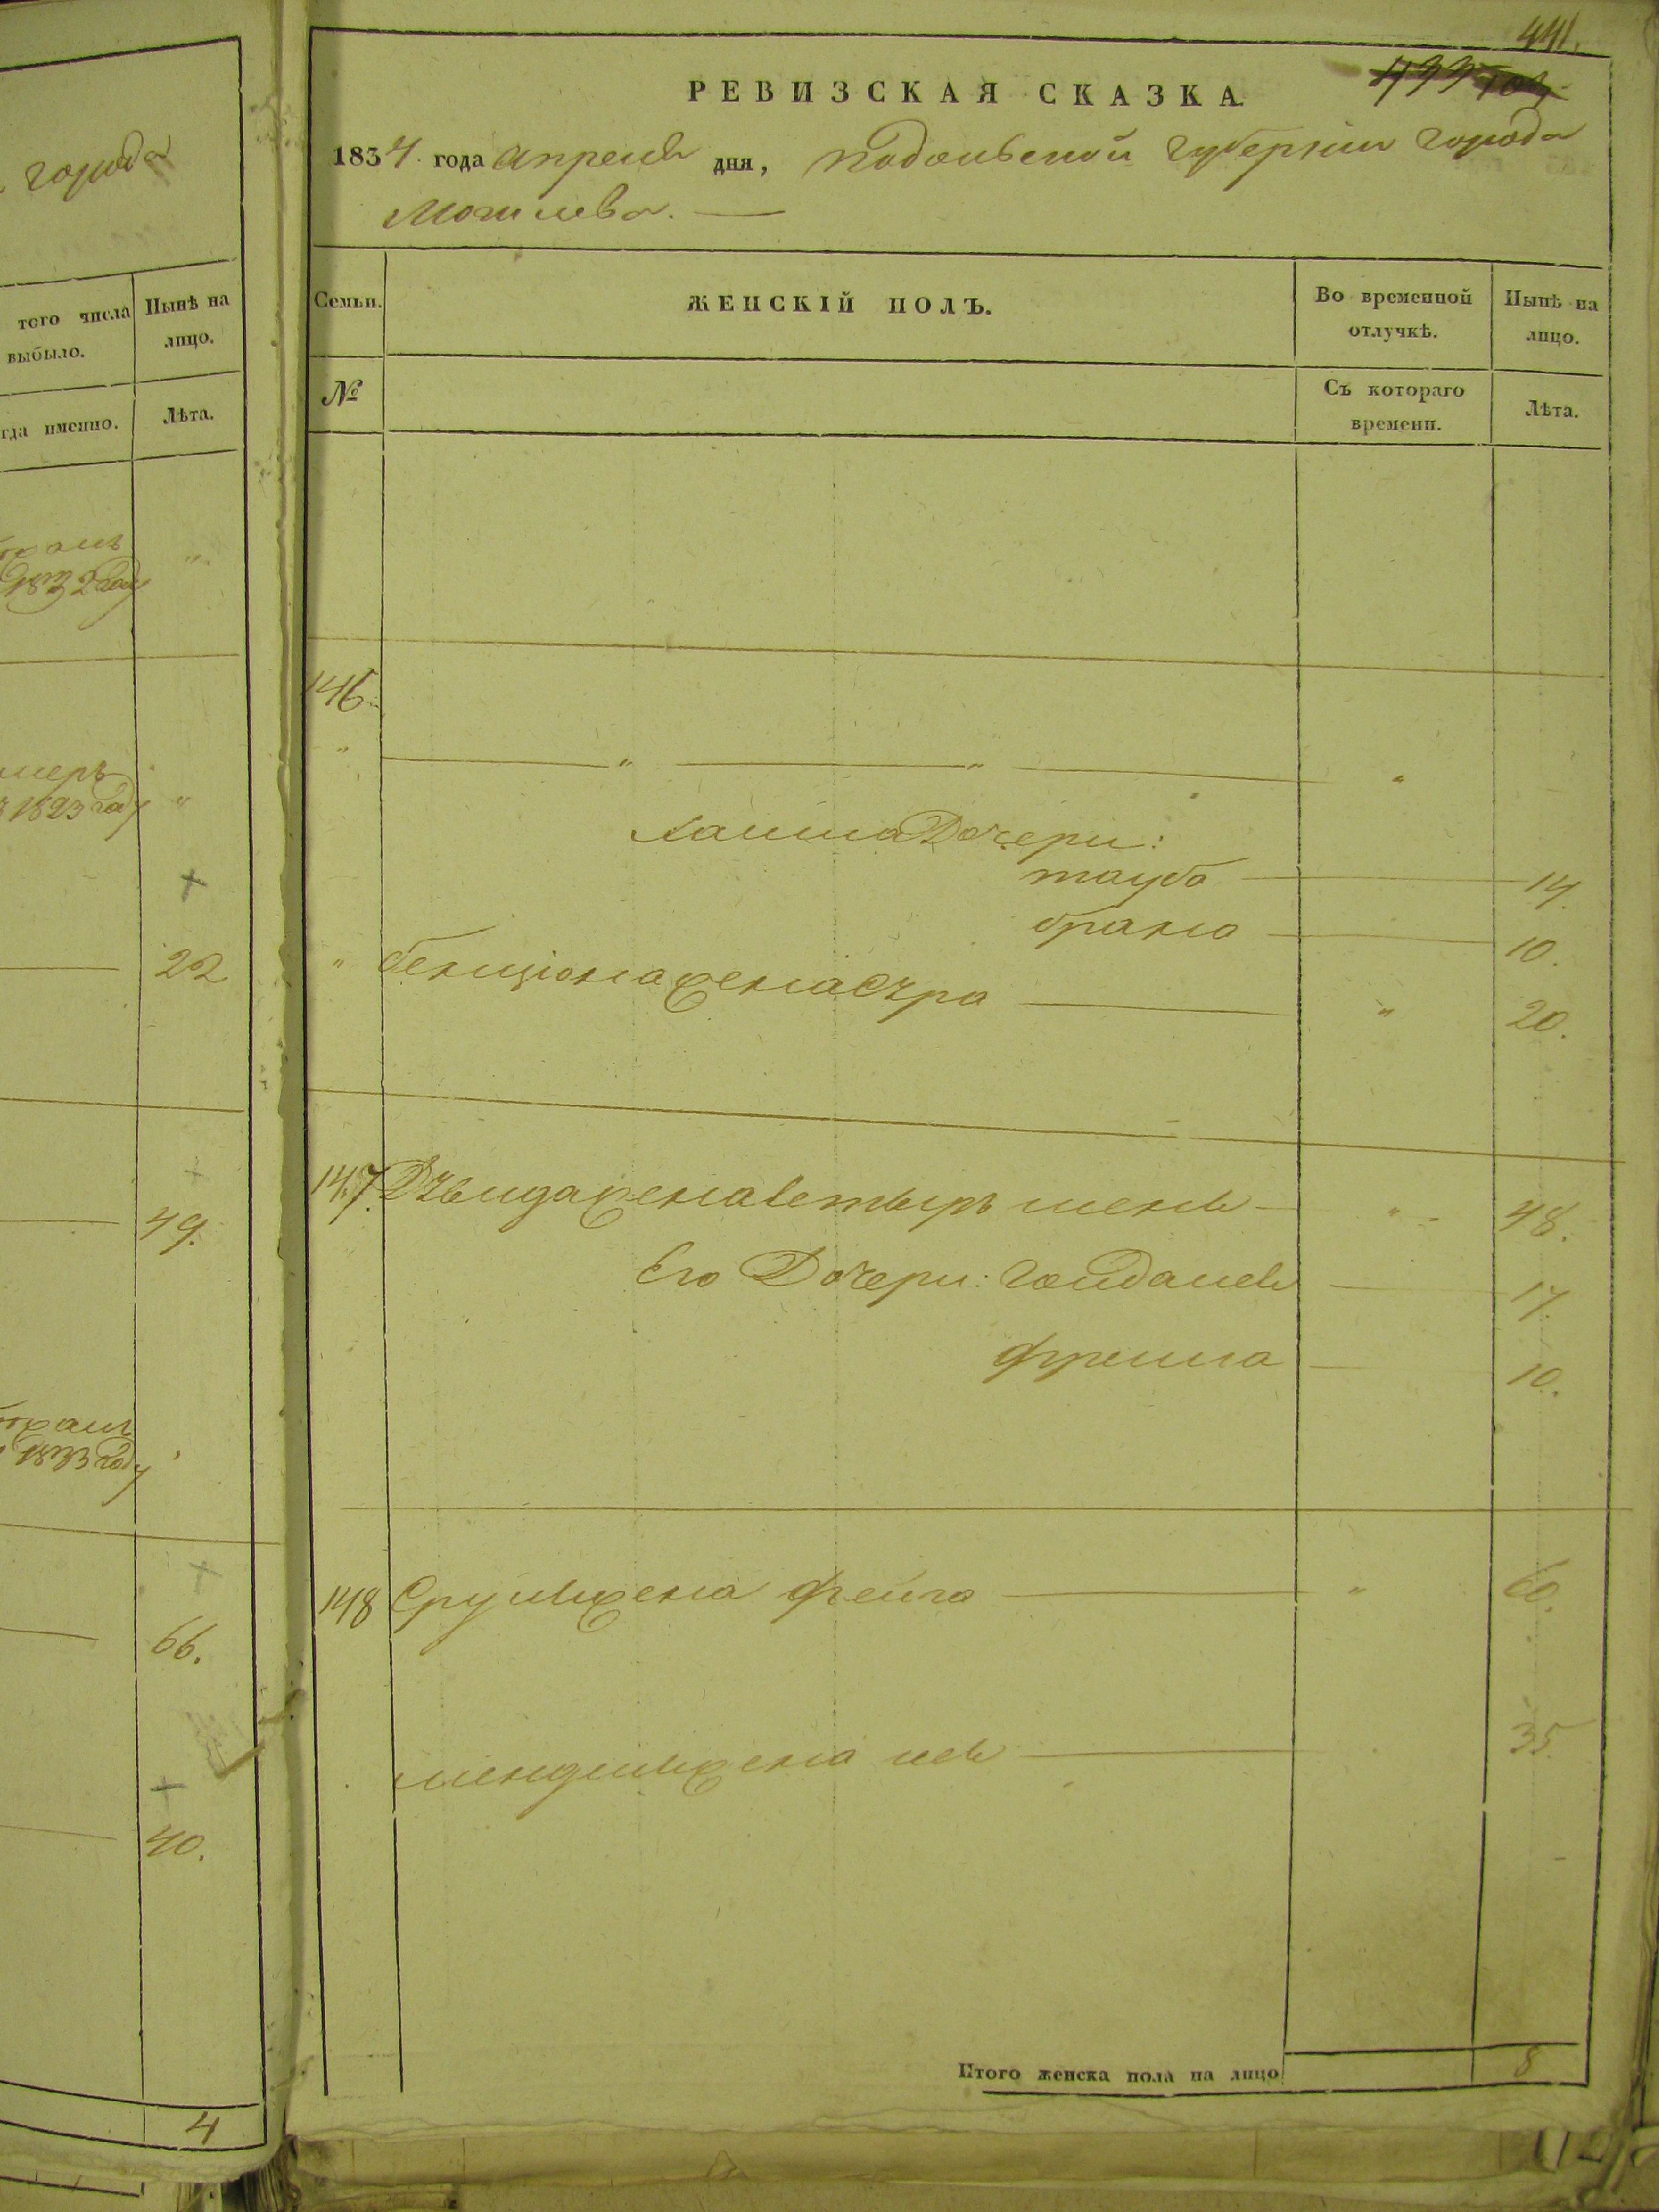 города
того числа
выбыло.
Нынѣ на
лицо.
гда именно.
Лѣта.
1832 году
"
умеръ
1823 году
"
22
49.
1833 году
66.
40.
4
441.
433
РЕВИЗСКАЯ СКАЗКА
1834 года апреля дня, Подольской губернии города
Могилева.
Семьи.
ЖЕНСКІЙ ПОЛЪ.
Во временной
отлучкѣ.
Нынѣ на
лицо.
№
Съ котораго
времени.
Лѣта.
146
" " " "
Хаима Дочери:
тауба 14
брана 10.
" бенціона жена Сура " 20.
147. жена 48.
Его Дочери: 17.
фрейма 10.
148 Сруля жена фейга " 60.
менделя жена лея 35
Итого женска пола на лицо 8